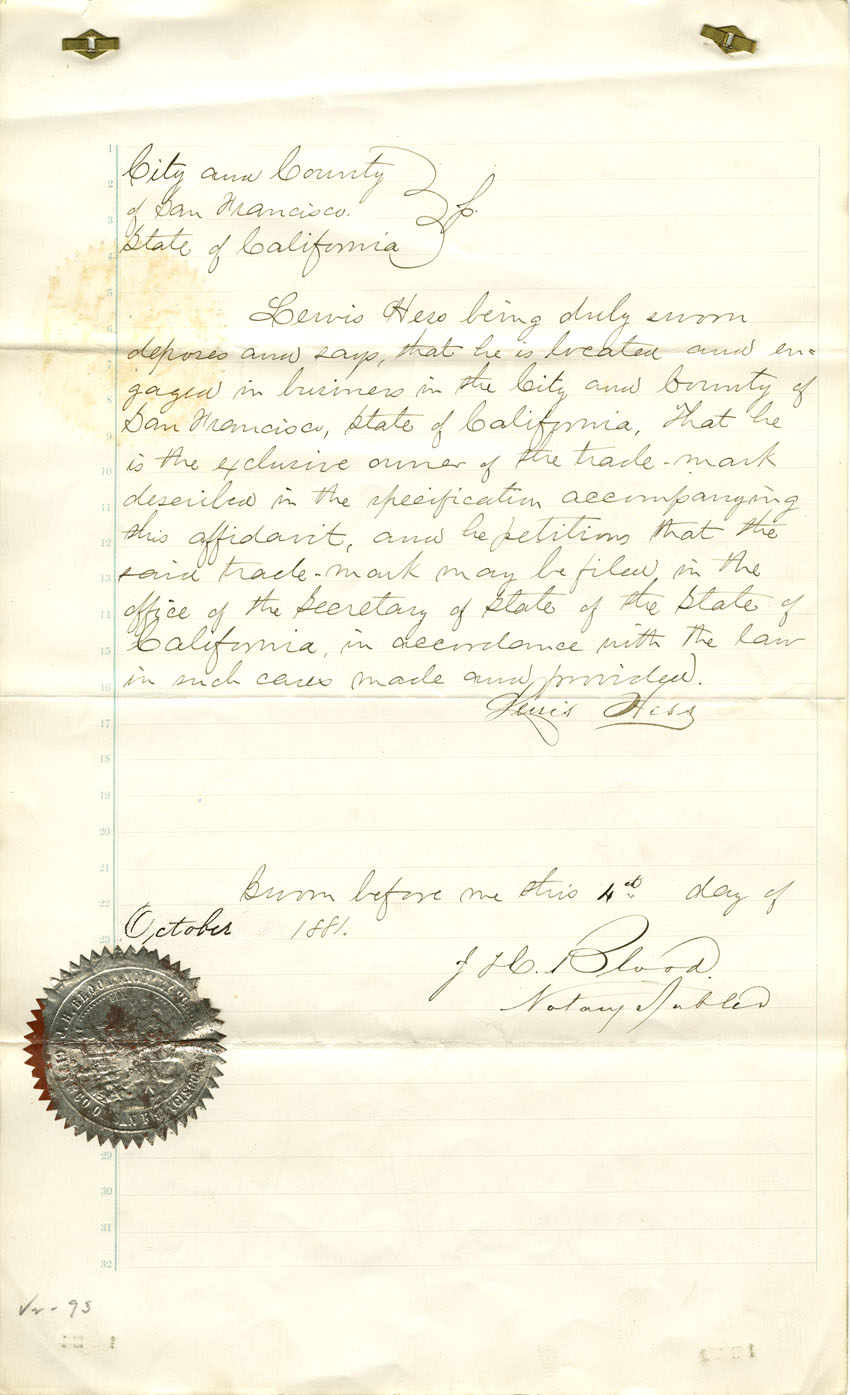 City and County
of San Francisco. } ss.
State of California
Lewis Hess being duly sworn
deposes and says, that he is located and en=
gaged in business in the City and County of
San Francisco, State of California, That he
is the exclusive owner of the trade-mark
described in the specification accompanying
this affidavit, and he petitions that the
said trade-mark may be filed in the
office of the Secretary of State of the State of
California, in accordance with the law
in such cases made and provided.
Lewis Hess
Sworn before me this 4th day of
October 1881.
J H. Blood.
Notary Public
1
2
3
4
5
6
7
8
9
10
11
12
13
14
15
16
17
18
19
20
21
22
23
29
30
31
32